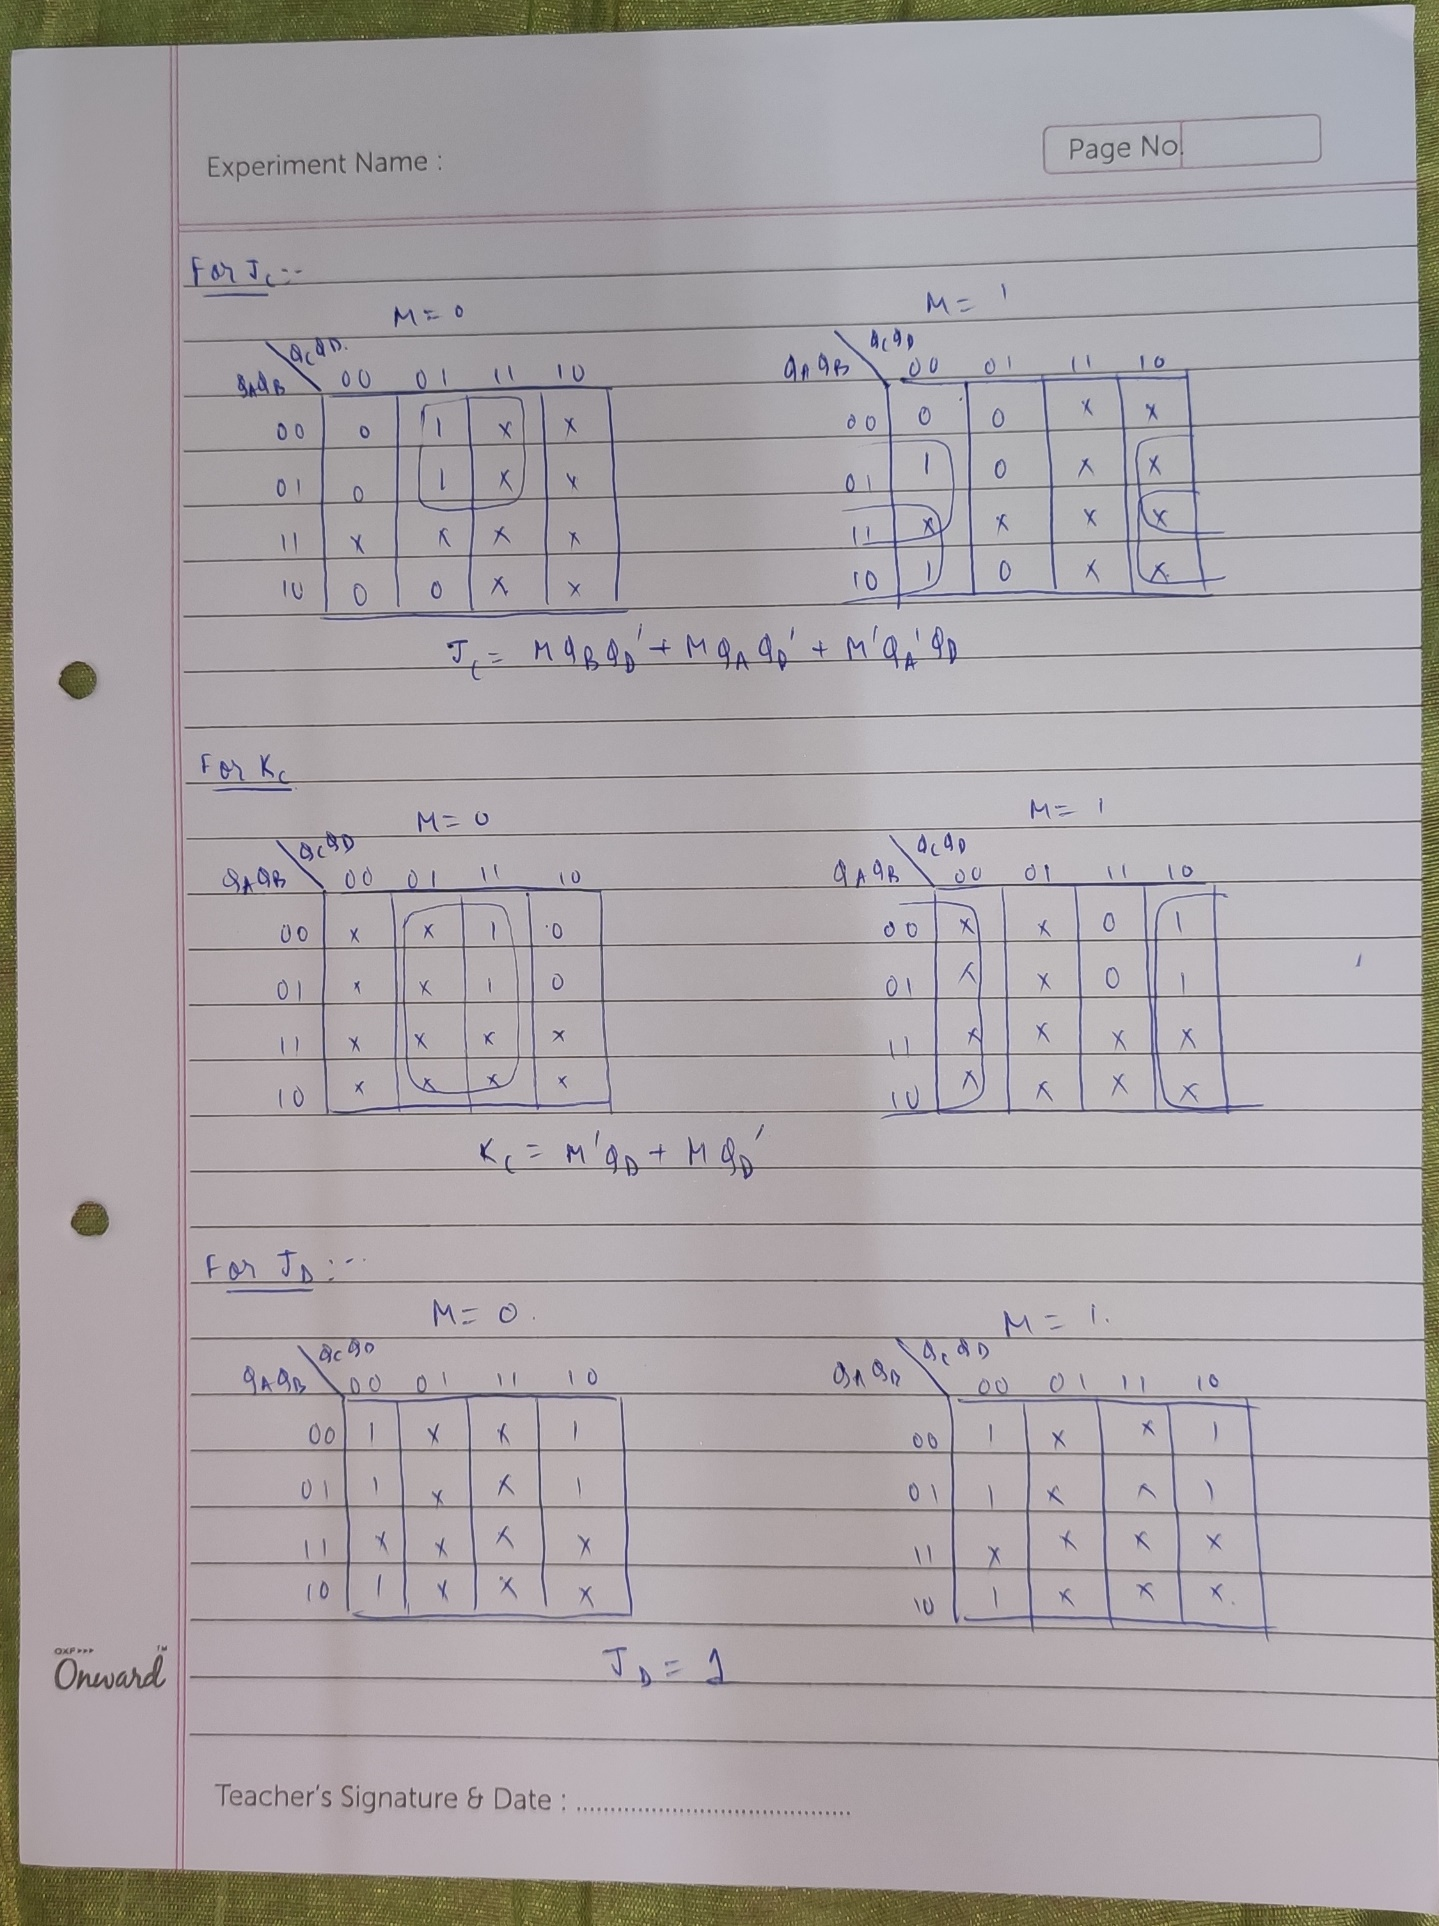 Experiment Name :
Page No.
For Jc :-
M = 0
M = 1
qAqB \ qcqD 00 01 11 10
00 0 1 x x
01 0 1 x x
11 x x x x
10 0 0 x x
qAqB \ qcqD 00 01 11 10
00 0 0 x x
01 1 0 x x
11 x x x x
10 1 0 x x
Jc = M qB qD' + M qA qD' + M' qA' qD
For Kc
M = 0
M = 1
qAqB \ qcqD 00 01 11 10
00 x x 1 0
01 x x 1 0
11 x x x x
10 x x x x
qAqB \ qcqD 00 01 11 10
00 x x 0 1
01 x x 0 1
11 x x x x
10 x x x x
Kc = M' qD + M qD'
For JD :-
M = 0.
M = 1.
qAqB \ qcqD 00 01 11 10
00 1 x x 1
01 1 x x 1
11 x x x x
10 1 x x x
qAqB \ qcqD 00 01 11 10
00 1 x x 1
01 1 x x 1
11 x x x x
10 1 x x x.
JD = 1
Onward TM
Teacher's Signature & Date : ..........................................